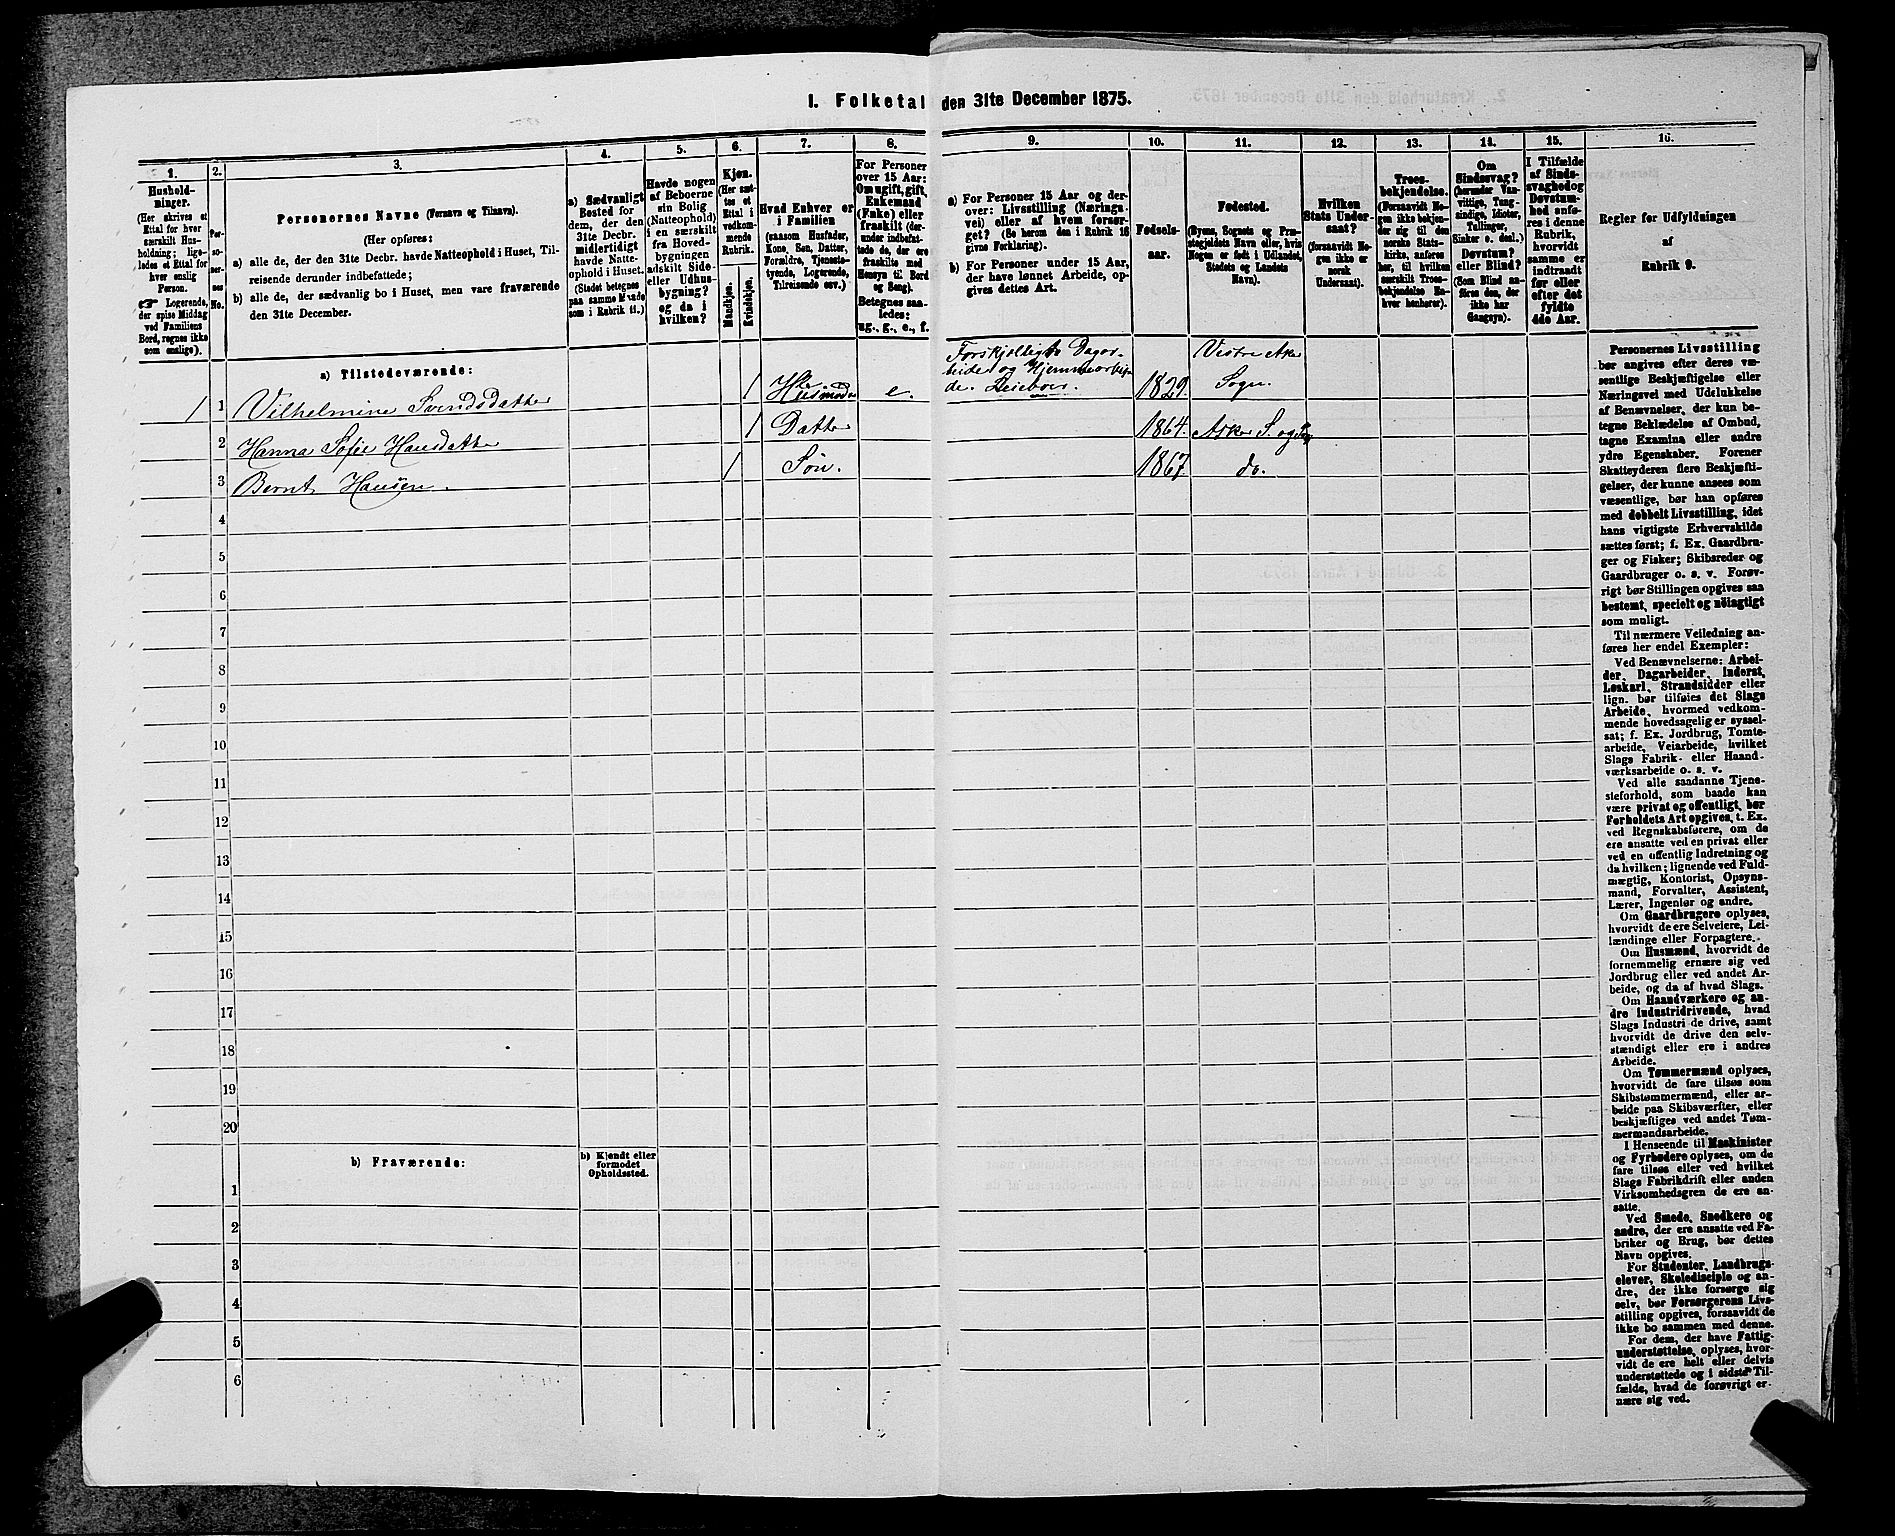 1. Folketal den 31te December 1875.
1.
Hushold-
ninger.
(Her skrives et
Ettal for hver
særskilt Hus-
holdning; lige-
ledes et Ettal for
hver enslig
Person.
☞ Logerende,
der spise Middag
ved Familiens
Bord, regnes ikke
som enslige).
2.
Per-
so-
ner-
nes
No.
3.
Personernes Navne (Fornavn og Tilnavn).
(Her opføres:
a) alle de, der den 31te Decbr. havde Natteophold i Huset, Til-
reisende derunder indbefattede;
b) alle de, der sædvanlig bo i Huset, men vare fraværende
den 31te December.
4.
a) Sædvanligt
Bosted for
dem, der den
31te Decbr.
midlertidigt
havde Natte-
ophold i Huset.
(Stedet betegnes
paa samme Maade
som i Rubrik 11.)
5.
Havde nogen
af Beboerne
sin Bolig
(Natteophold)
i en særskilt
fra Hoved-
bygningen
adskilt Side-
eller Udhus-
bygning?
og da i
hvilken?
6.
Kjøn.
(Her sæt-
tes et
Ettal i
vedkom-
mende
Rubrik.
Mandkjøn.
Kvindekjøn.
7.
Hvad Enhver er
i Familien
(saasom Husfader,
Kone, Søn, Datter,
Forældre, Tjeneste-
tyende, Logerende,
Tilreisende osv.)
8.
For Personer
over 15 Aar:
Om ugift, gift,
Enkemand
(Enke) eller
fraskilt (der-
under indbefat-
tede de, der ere
fraskilte med
Hensyn til Bord
og Seng).
Betegnes saa-
ledes:
ug., g., e., f.
9.
a) For Personer 15 Aar og der-
over: Livsstilling (Nærings-
vei) eller af hvem forsør-
get? (Se herom den i Rubrik 16
givne Forklaring).
b) For Personer under 15 Aar,
der have lønnet Arbeide, op-
gives dettes Art.
10.
Fødsels-
aar.
11.
Fødested.
(Byens, Sognets og Præ-
stegjeldets Navn eller, hvis
Nogen er født i Udlandet,
Stedets og Landets
Navn).
12.
Hvilken
Stats Under-
saat?
(forsaavidt No-
gen ikke er
norsk
Undersaat).
13.
Troes-
bekjendelse.
(Forsaavidt No-
gen ikke bekjen-
der sig til den
norske Stats-
kirke, anføres
her, til hvilken
særskilt Troes-
bekjendelse En-
hver henhører).
14.
Om
Sindssvag?
(herunder Van-
vittige, Tung-
sindige, Idioter,
Sinker o. desl.)
Døvstum?
eller Blind?
(Som Blind an-
føres den, der
ikke har
Gangsyn).
15.
I Tilfælde
af Sinds-
svaghed og
Døvstum-
hed anfø-
res i denne
Rubrik,
hvorvidt
samme er
indtraadt
før eller
efter det
fyldte
4de Aar.
16.
Regler for Udfyldningen
af
Rubrik 9.
a) Tilstedeværende:
1 1 Vilhelmine Svendsdatter 1 Husmoder e. Forskjelligt Dagar-
beide og Hjemmearbei-
de. Leieboer. 1829. Vestre Aker
Sogn.
2 Hanna Sofie Hansdatter 1 Datter 1864. Asker S. og
3 Bernt Hansen. 1 Søn. 1867. do.
4
5
6
7
8
9
10
11
12
13
14
15
16
17
18
19
20
b) Fraværende:
b) Kjendt eller
formodet
Opholdssted.
1
2
3
4
5
6
Personernes Livsstilling
bør angives efter deres væ-
sentlige Beskjæftigelse eller
Næringsvei med Udelukkelse
af Benævnelser, der kun be-
tegne Beklædelse af Ombud,
tagne Examina eller andre
ydre Egenskaber. Forener
Skatteyderen flere Beskjæfti-
gelser, der kunne ansees som
væsentlige, bør han opføres
med dobbelt Livsstilling, idet
hans vigtigste Erhvervskilde
sættes først; f. Ex. Gaardbru-
ger og Fisker; Skibsreder og
Gaardbruger o. s. v. Forøv-
rigt bør Stillingen opgives saa
bestemt, specielt og nöiagtigt
som muligt.
Til nærmere Veiledning an-
føres her endel Exempler:
Ved Benævnelserne: Arbei-
der, Dagarbeider, Inderst,
Løskarl, Strandsidder eller
lign. bør tilføies det Slags
Arbeide, hvormed vedkom-
mende hovedsagelig er syssel-
sat; f. Ex. Jordbrug, Tomte-
arbeide, Veiarbeide, hvilket
Slags Fabrik- eller Haand-
værksarbeide o. s. v.
Ved alle saadanne Tjene-
steforhold, som baade kan
være privat og offentligt, bør
Forholdets Art opgives, t. Ex.
ved Regnskabsførere, om de
ere ansatte ved en privat eller
ved en offentlig Indretning og
da hvilken; lignende ved Fuld-
mægtig, Kontorist, Opsyns-
mand, Forvalter, Assistent,
Lærer, Ingeniør og andre.
Om Gaardbrugere oplyses,
hvorvidt de ere Selveiere, Lei-
lændinge eller Forpagtere.
Om Husmænd, hvorvidt de
fornemmelig ernære sig ved
Jordbrug eller ved andet Ar-
beide, og da af hvad Slags.
Om Haandværkere og an-
dre Industridrivende, hvad
Slags Industri de drive, samt
hvorvidt de drive den selv-
stændigt eller ere i andres
Arbeide.
Om Tømmermænd oplyses,
hvorvidt de fare tilsøs som
Skibstømmermænd, eller ar-
beide paa Skibsværfter, eller
beskjæftiges ved andet Tøm-
mermandsarbeide.
I Henseende til Maskinister
og Fyrbødere oplyses, om de
fare tilsøs eller ved hvilket
Slags Fabrikdrift eller anden
Virksomhedsgren de ere an-
satte.
Ved Smede, Snedkere og
andre, der ere ansatte ved Fa-
briker og Brug, bør dettes
Navn opgives.
For Studenter, Landbrugs-
elever, Skoledisciple og an-
dre, der ikke forsørge sig
selv, bør Forsørgerens Livs-
stilling opgives, forsaavidt de
ikke bo sammen med denne.
For dem, der have Fattig-
understøttelse, oplyses, hvor-
vidt de ere helt eller delvis
understøttede og i sidste Til-
fælde, hvad de forøvrigt er-
nære sig ved.